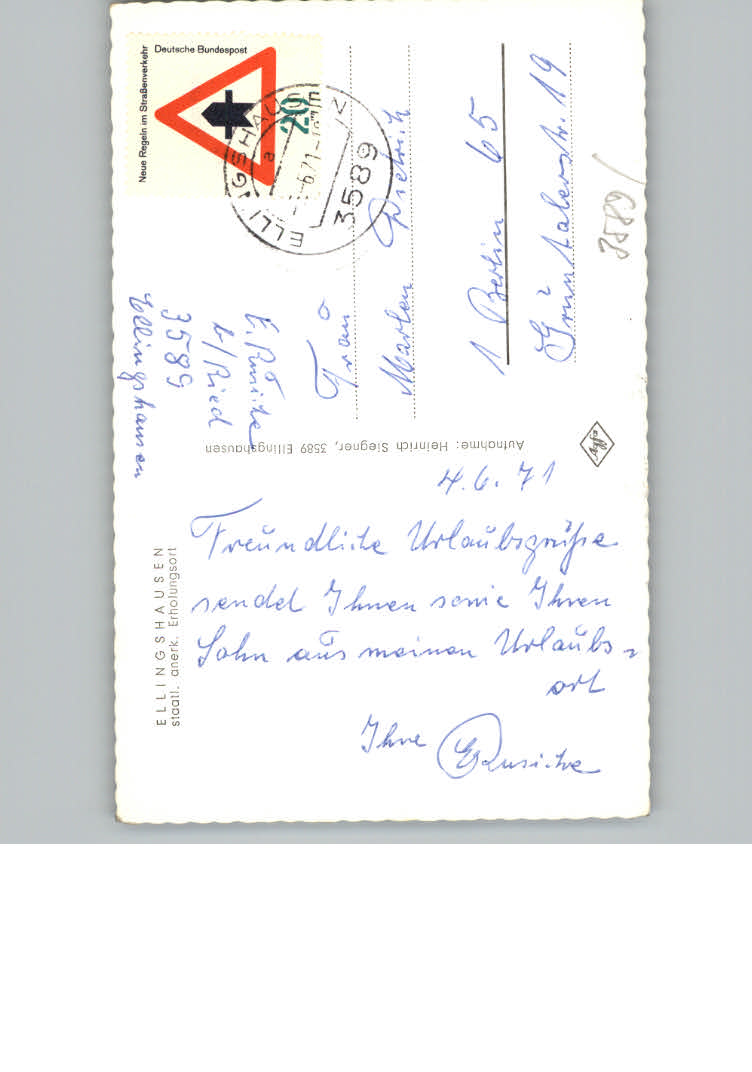 ELLINGSHAUSEN
staatl. anerk. Erholungsort
4.6.71
Freundliche Urlaubsgrüße
sendet Ihnen sowie Ihren
Sohn aus meinen Urlaubs=
ort
Ihre
Aufnahme: Heinrich Siegner, 3589 Ellingshausen
b/Ried
3589
Ellingshausen
Deutsche Bundespost
Neue Regeln im Straßenverkehr
20
ELLINGSHAUSEN
a
3589
Frau
Marlen Dietrich
1 Berlin 65
Grüntalerstr. 19
3589
Agfa